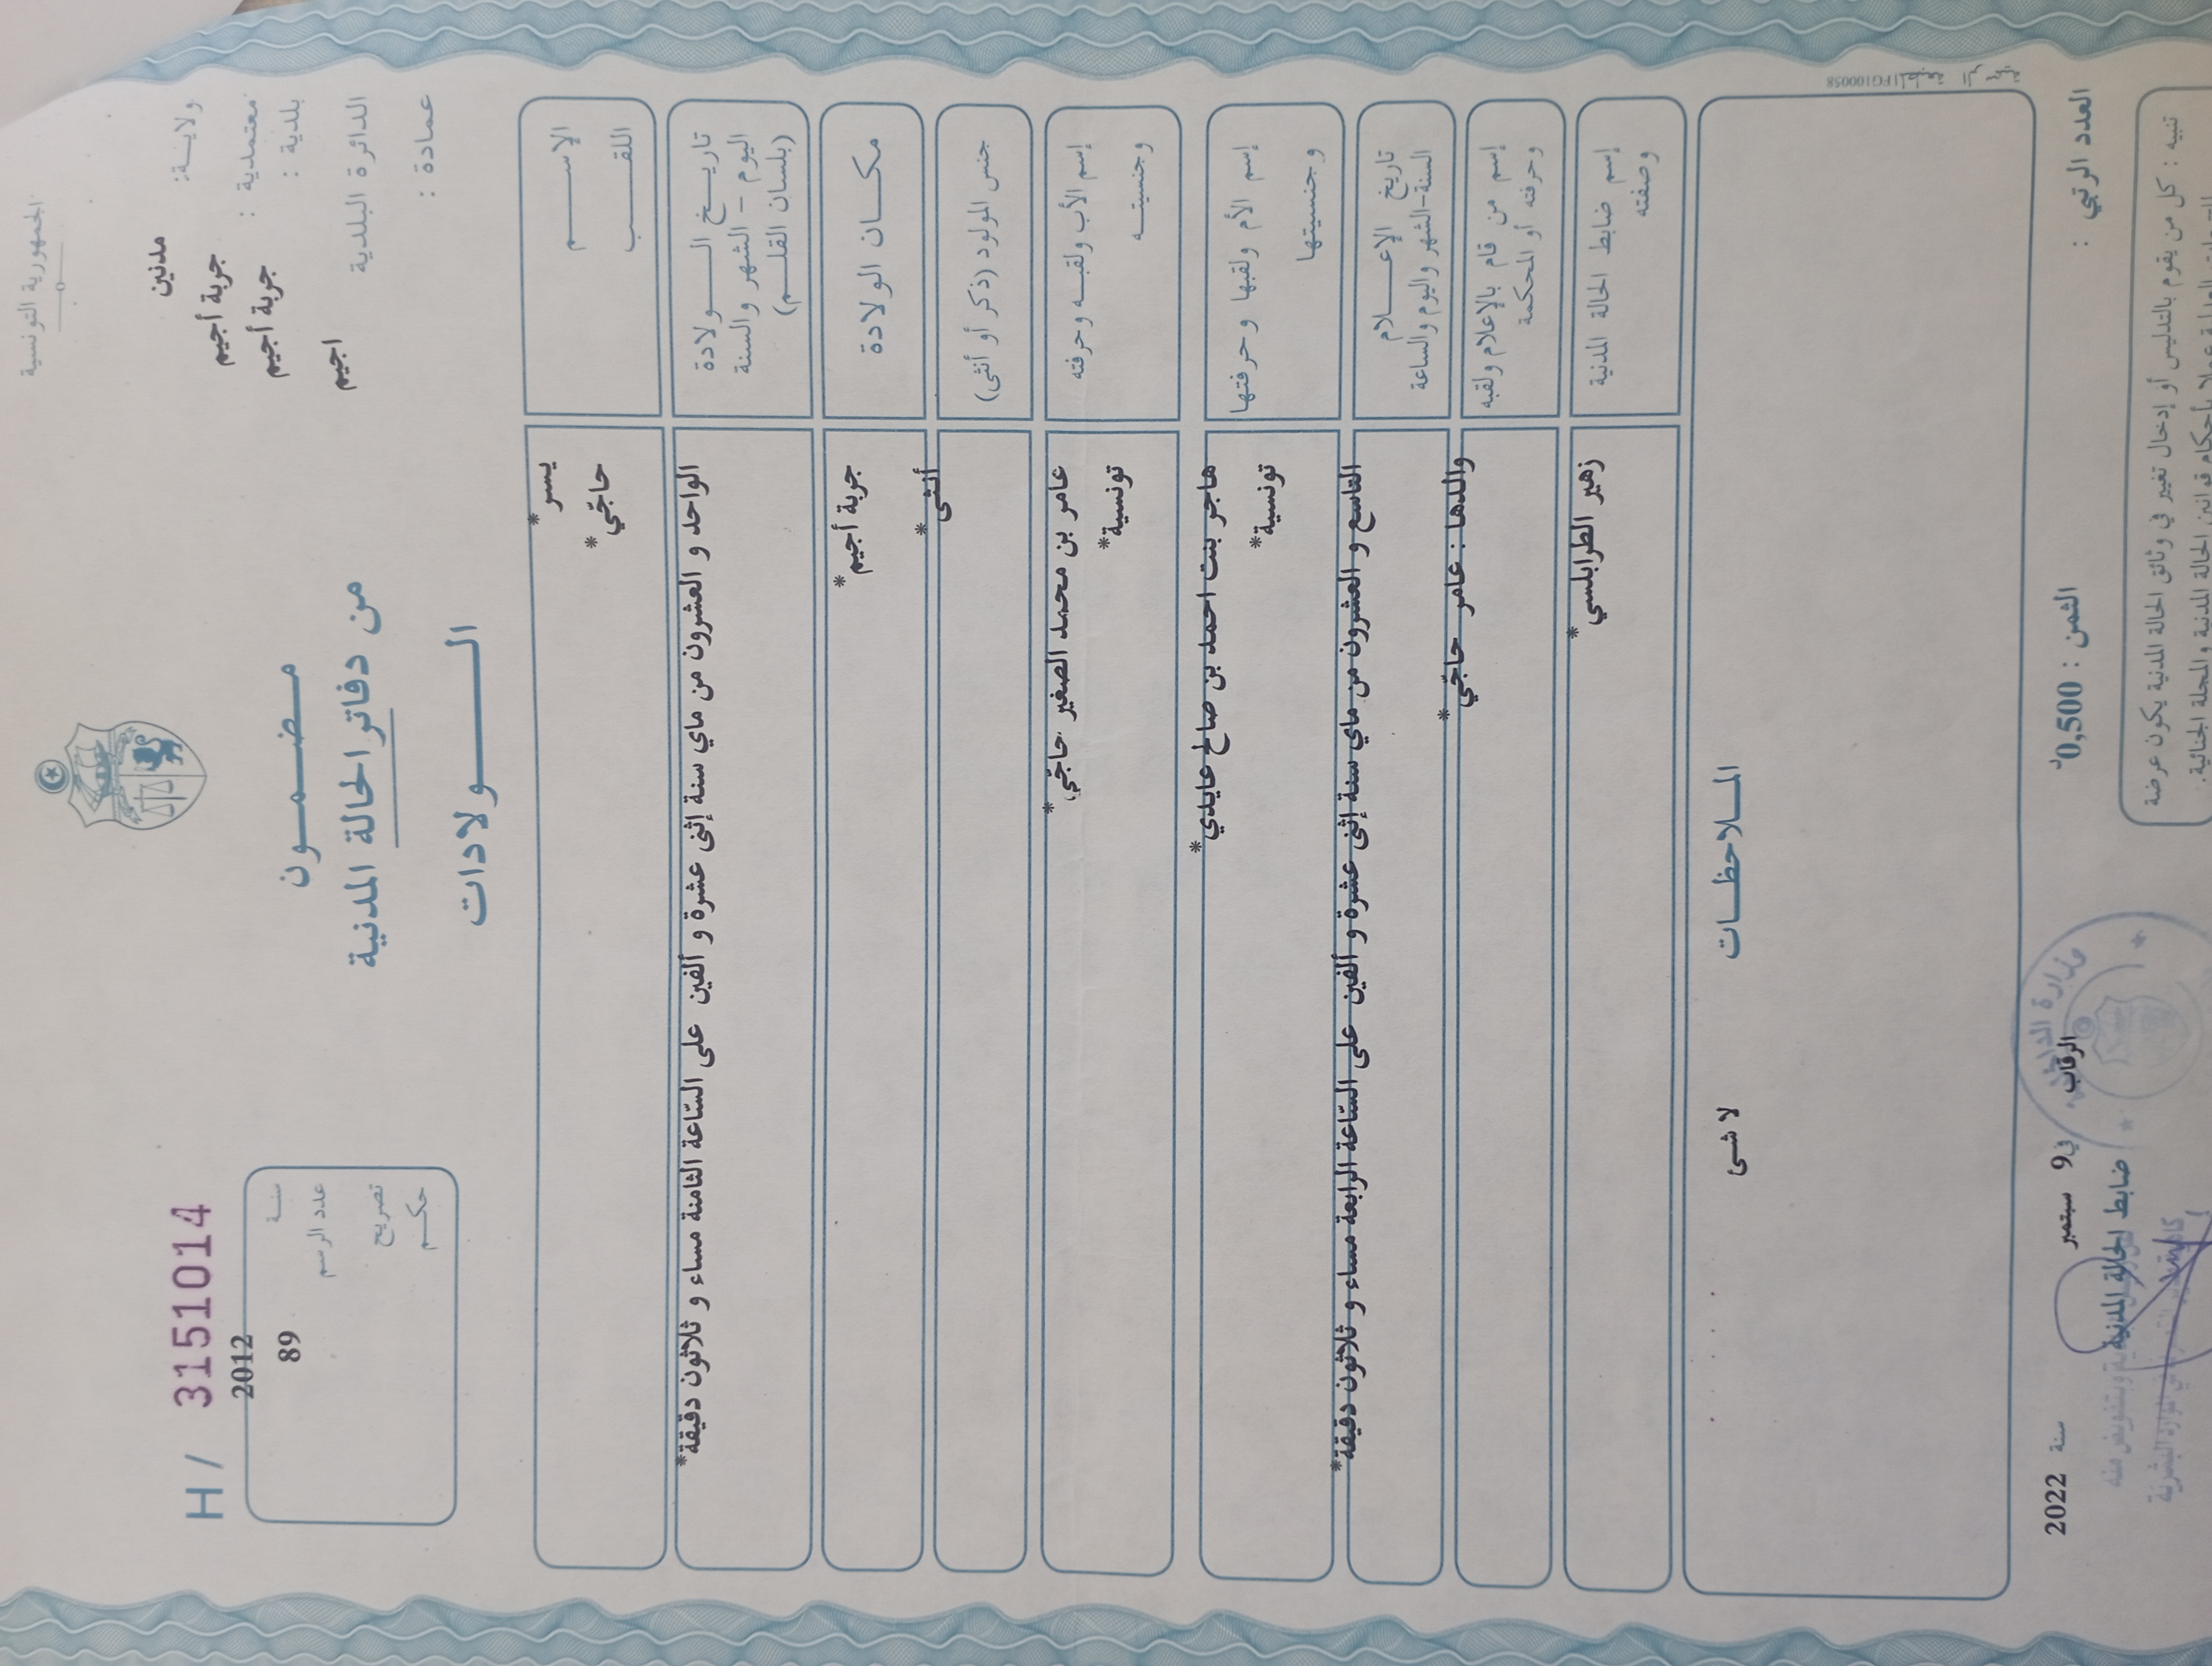 الجمهورية التونسية
ولايـــة: مدنين
معتمدية : جربة أجيم
بلدية : جربة أجيم
الدائرة البلدية اجيم
عمادة :
H / 3151014
سنــة 2012
عدد الرسم 89
تصريح
حكــم
مـضـمـــون
من دفاتر الحالة المدنية
الـــولادات
الإســـــم يسر*
اللقـــــب حاجّي*
تاريـــخ الــــولادة
اليوم – الشهر والسنة
(بلسان القلـــم)
الواحد و العشرون من ماي سنة إثنى عشرة و ألفين على السّاعة الثامنة مساء و ثلاثون دقيقة*
مكـــان الولادة جربة أجيم*
جنس المولود (ذكر أو أنثى) أنثى*
إسم الأب ولقبــه وحرفته عامر بن محمد الصغير حاجّي*
وجنسيتــه تونسية*
إسم الأم ولقبها وحرفتها هاجر بنت احمد بن صالح عايدي*
وجنسيتها تونسية*
تاريخ الإعــــلام
السنة-الشهر واليوم والساعة
التاسع و العشرون من ماي سنة إثنى عشرة و ألفين على السّاعة الرابعة مساء و ثلاثون دقيقة*
إسم من قام بالإعلام ولقبه
وحرفته أو المحكمة
والدها : عامر حاجّي*
إسم ضابط الحالة المدنية
وصفته
زهير الطرابلسي*
الملاحظــات
لا شى
العدد الرتبي :
الثمن : 0,500د
الرقاب في 9 سبتمبر سنة 2022
ضابط الحالة المدنية
تنبيه : كل من يقوم بالتدليس أو إدخال تغيير في وثائق الحالة المدنية يكون عرضة
بأحكام قوانين الحالة المدنية والمجلة الجنائية.